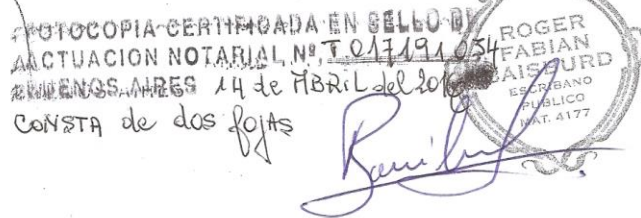 FOTOCOPIA CERTIFICADA EN SELLO DE
ACTUACION NOTARIAL Nº T 017191034
BUENOS AIRES 14 de ABRiL del 2016
CONSTA de dos fojAs
ROGER
FABIAN
ESCRIBANO
PUBLICO
MAT. 4177